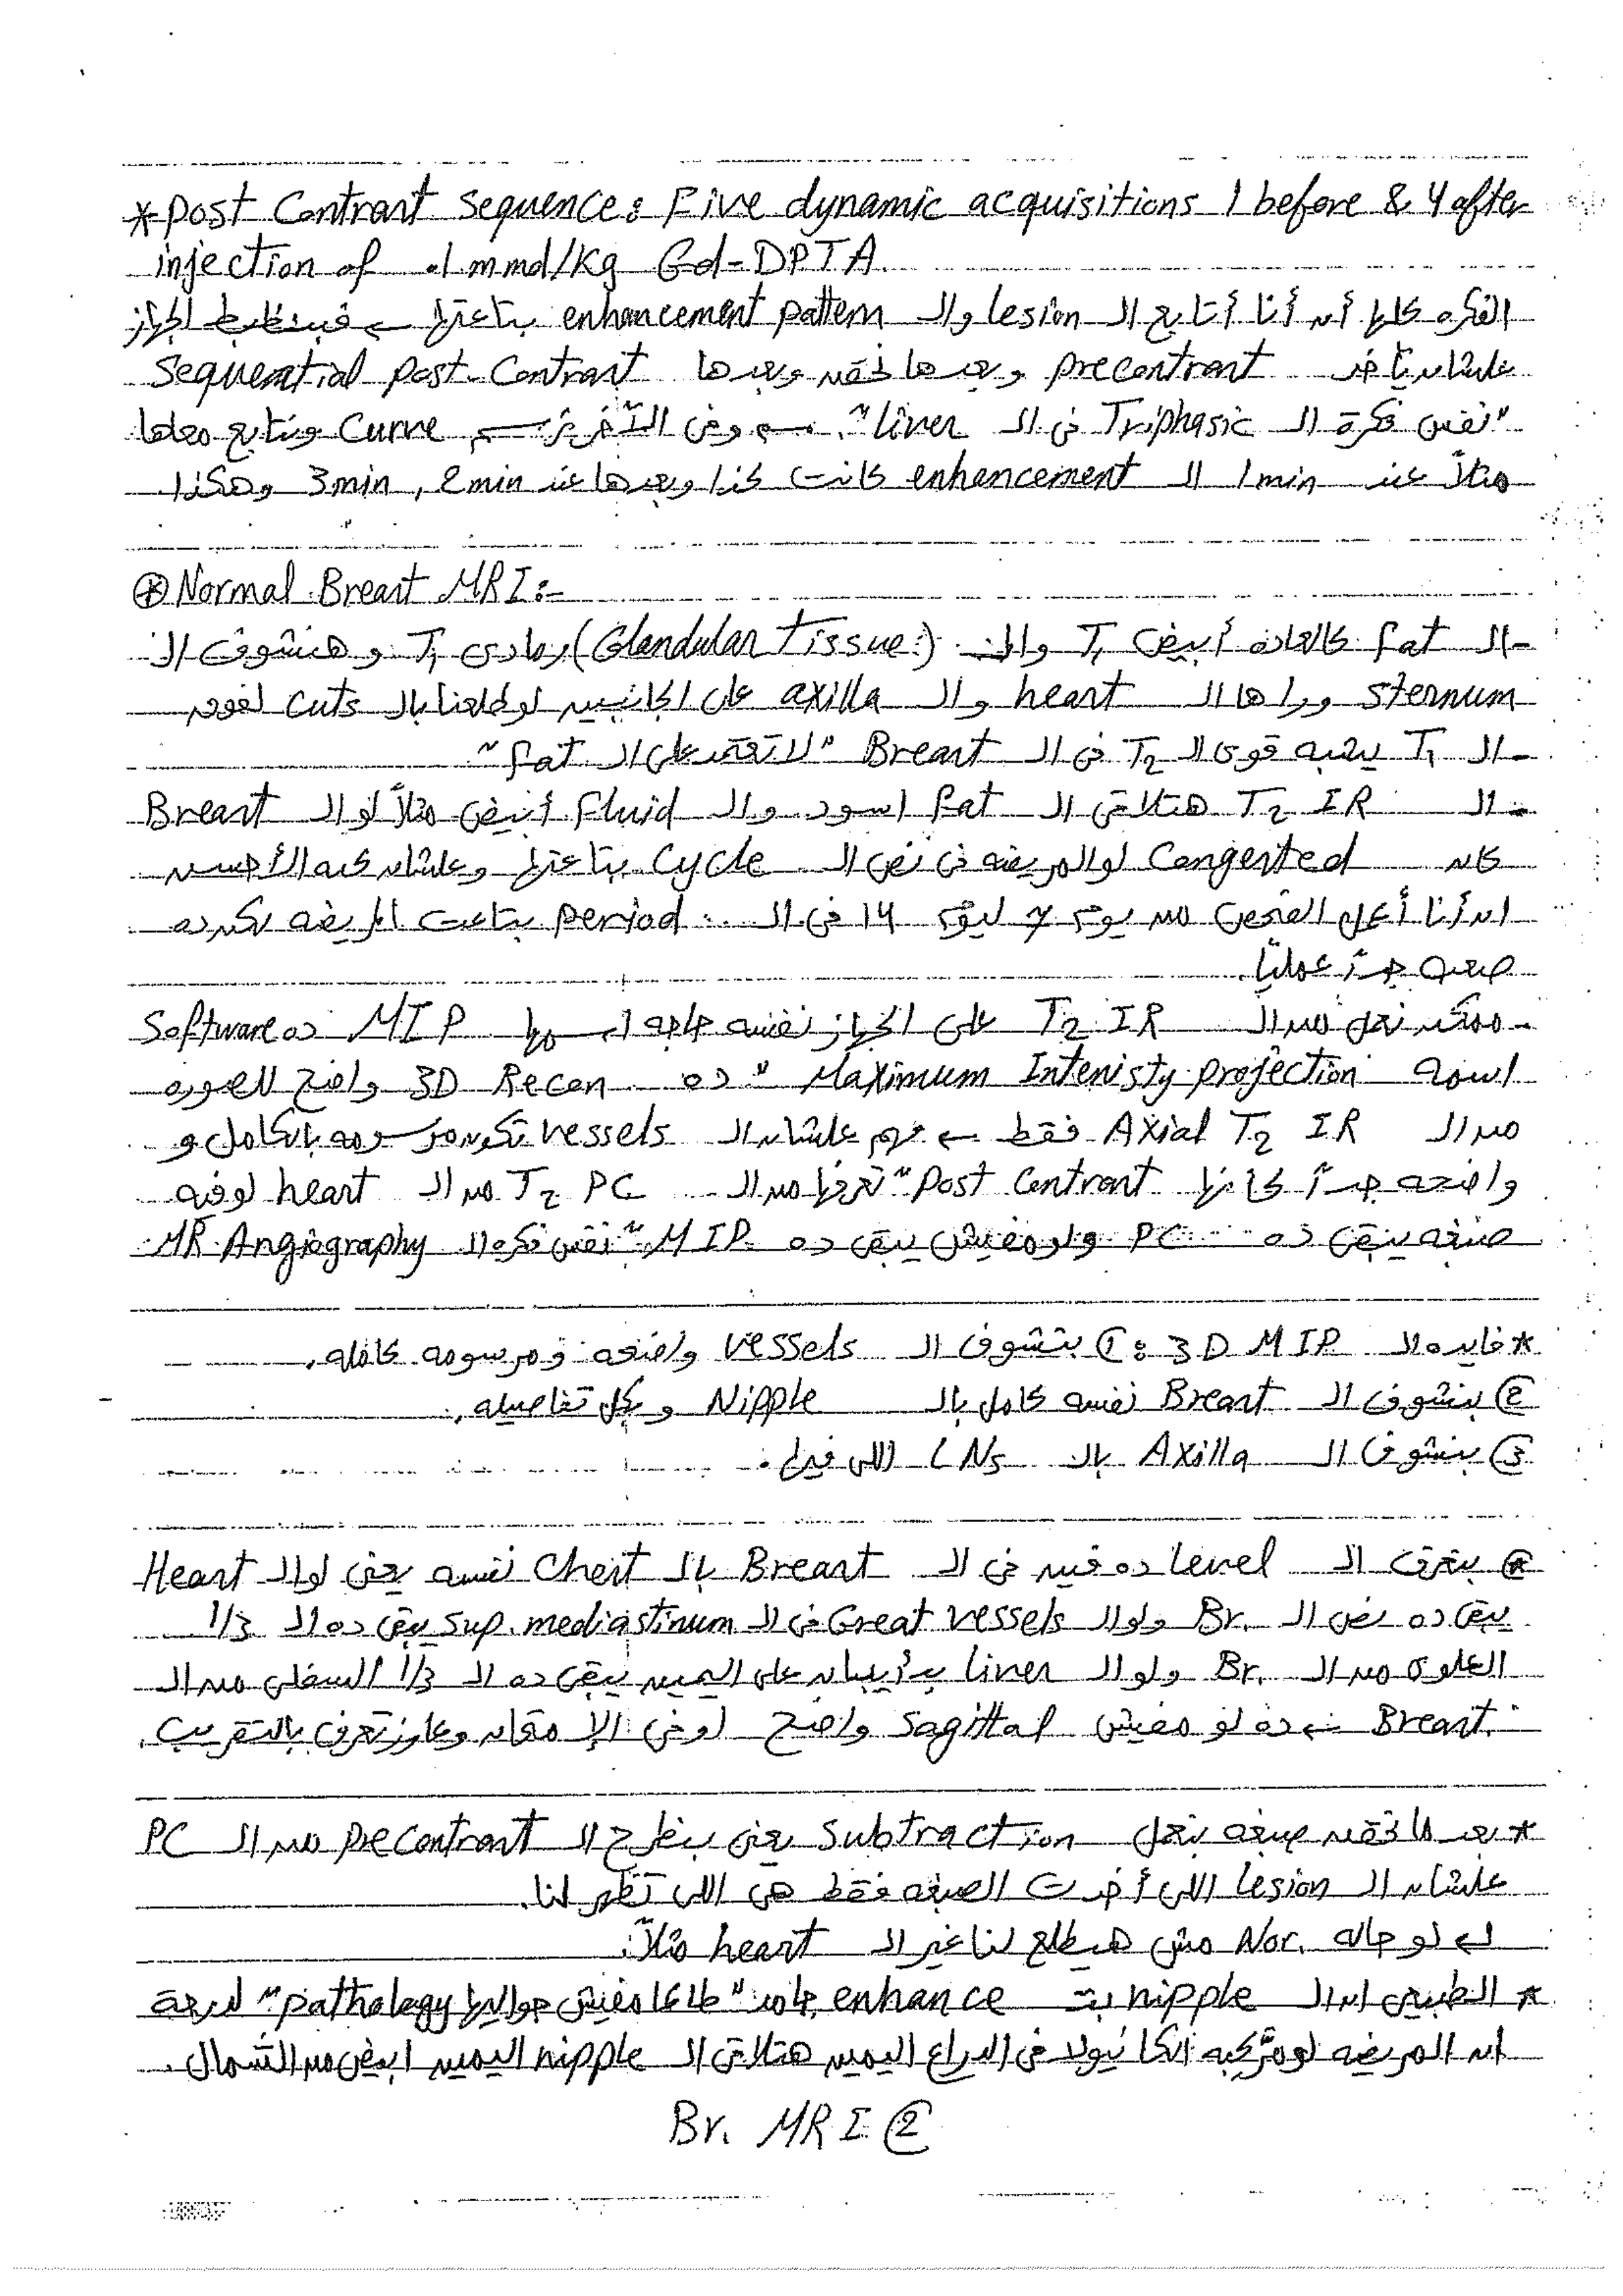 *Post Contrast Sequence: Five dynamic acquisitions 1 before & 4 after
injection of .1 mmd/Kg Gd-DPTA.
الفكره كلها أن أنا أتابع الـ lesion والـ enhancement pattern بتاعتها ← فبنظبط الجهاز
علشان ياخد precontrast وبعدها نحقن وبعدها Sequential Post-Contrast
"نفس فكرة الـ Triphasic فى الـ liver". وفى الآخر نرسم Curve ونتابع معاها
مثلاً عند 1 min الـ enhancement كانت كذا وبعدها عند 2min , 3min وهكذا
⊛ Normal Breast MRI:-
- الـ fat كالعاده أبيض T1 والـ (Glandular Tissue) رمادى T1 وهنشوف الـ
sternum وراها الـ heart والـ axilla على الجانبين لو طلعنا بالـ cuts لفوق
- الـ T1 يشبه قوى الـ T2 فى الـ Breast "لا تعتمد على الـ fat".
- الـ T2 IR هتلاقى الـ fat اسود والـ Fluid أبيض مثلاً لو الـ Breast
كان Congested لو المريضه فى نص الـ Cycle بتاعتها وعلشان كده الأحسن
ان أنا أعمل الفحص من يوم 7 ليوم 14 فى الـ period بتاعت المريضه لكن ده
صعب جداً عملياً.
- ممكن نعمل من الـ T2 IR على الجهاز نفسه حاجه اسمها MIP ده Software
اسمه Maximum Intenisty projection" ده 3D Recon واضح للصوره
من الـ Axial T2 IR فقط ← مهم علشان الـ vessels تكون مرسومه بالكامل و
واضحه جداً كانها Post Contrast "تعرفها من الـ T2 PC من الـ heart لو فيه
صبغه يبقى ده PC ولو مفيش يبقى ده MIP" نفس فكره الـ MR Angiography
* فايده الـ 3D MIP: ① بتشوف الـ vessels واضحه ومرسومه كامله.
② بنشوف الـ Breast نفسه كامل بالـ Nipple وبكل تفاصيله.
③ بنشوف الـ Axilla بالـ LNs اللى فيها.
⊛ بنعرف الـ level ده فين فى الـ Breast بالـ Chest نفسه يعنى لو الـ Heart
يبقى ده نص الـ Br. ولو الـ Great vessels فى الـ sup. mediastinum يبقى ده الـ 1/3
العلوى من الـ Br. ولو الـ liver بدأ يبان على اليمين يبقى ده الـ 1/3 السفلى من الـ
Breast. ← ده لو مفيش sagittal واضح لو فى الإمتحان وعاوز تعرف بالتقريب.
* بعد ما نحقن صبغه بنعمل Subtraction يعنى بنطرح الـ Precontrast من الـ PC
علشان الـ lesion اللى أخدت الصبغه فقط هى اللى تظهر لنا.
↳ لو حاله Nor. مش هيطلع لنا غير الـ heart مثلاً.
* الطبيعى ان الـ nipple بتـ enhance جامد "طالما مفيش حواليها pathology" لدرجة
ان المريضه لو مركبه الكانيولا فى الدراع اليمين هتلاقى الـ nipple اليمين ابيض من الشمال.
Br. MRI ②